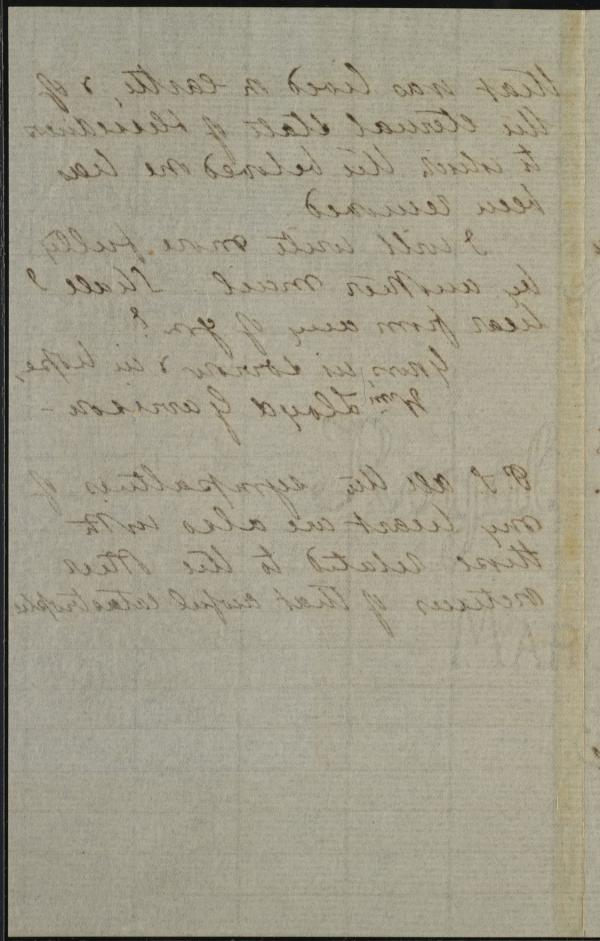 that was lived on earth, & of
the eternal state of blessedness
to which the beloved one has
been removed
I will write more fully
by another mail Shall I
hear from any of you?
Yours in sorrow & in hope,
Wm. Lloyd Garrison -
P.S. All the sympathies of
my heart are also with
those related to the other
victims of that awful catastrophe